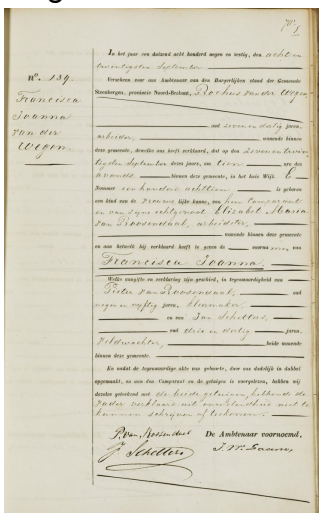 N.° 139.
Francisca
Joanna
van der
Wegen.
In het jaar een duizend acht honderd negen en veertig, den achten
twintigsten September
Verscheen voor ons Ambtenaar van den Burgerlijken stand der Gemeente
Steenbergen, provincie Noord-Brabant, Rochus van der Wegen,
oud zeven en dertig jaren,
arbeider, wonende binnen
deze gemeente, dewelke ons heeft verklaard, dat op den zevenen twin
tigsten September dezes jaars, om tien ure des
avonds binnen deze gemeente, in het huis Wijk E
Nommer een honderd achttien is geboren
een kind van de vrouwelijke kunne, van hem Comparant
en van zijne echtgenoot Elizabet Maria
van Roosendaal, arbeidster,
wonende binnen deze gemeente
en aan hetwelk hij verklaard heeft te geven de voornamen van
Francisca Joanna.
Welke aangifte en verklaring zijn geschied, in tegenwoordigheid van
Pieter van Roosendaal, oud
negen en vijftig jaren,
en van Jan Schellers,
oud drie en dertig jaren,
Veldwachter, beide wonende
binnen deze gemeente.
En nadat de tegenwoordige akte van geboorte, door ons dadelijk in dubbel
opgemaakt, en aan den Comparant en de getuigen is voorgelezen, hebben wij
dezelve geteekend met de beide getuigen, hebbende de
vader verklaard uit onkunde niet te
kunnen schrijven of teekenen.
P. van Rosendaal
De Ambtenaar voornoemd,
J. Schellers